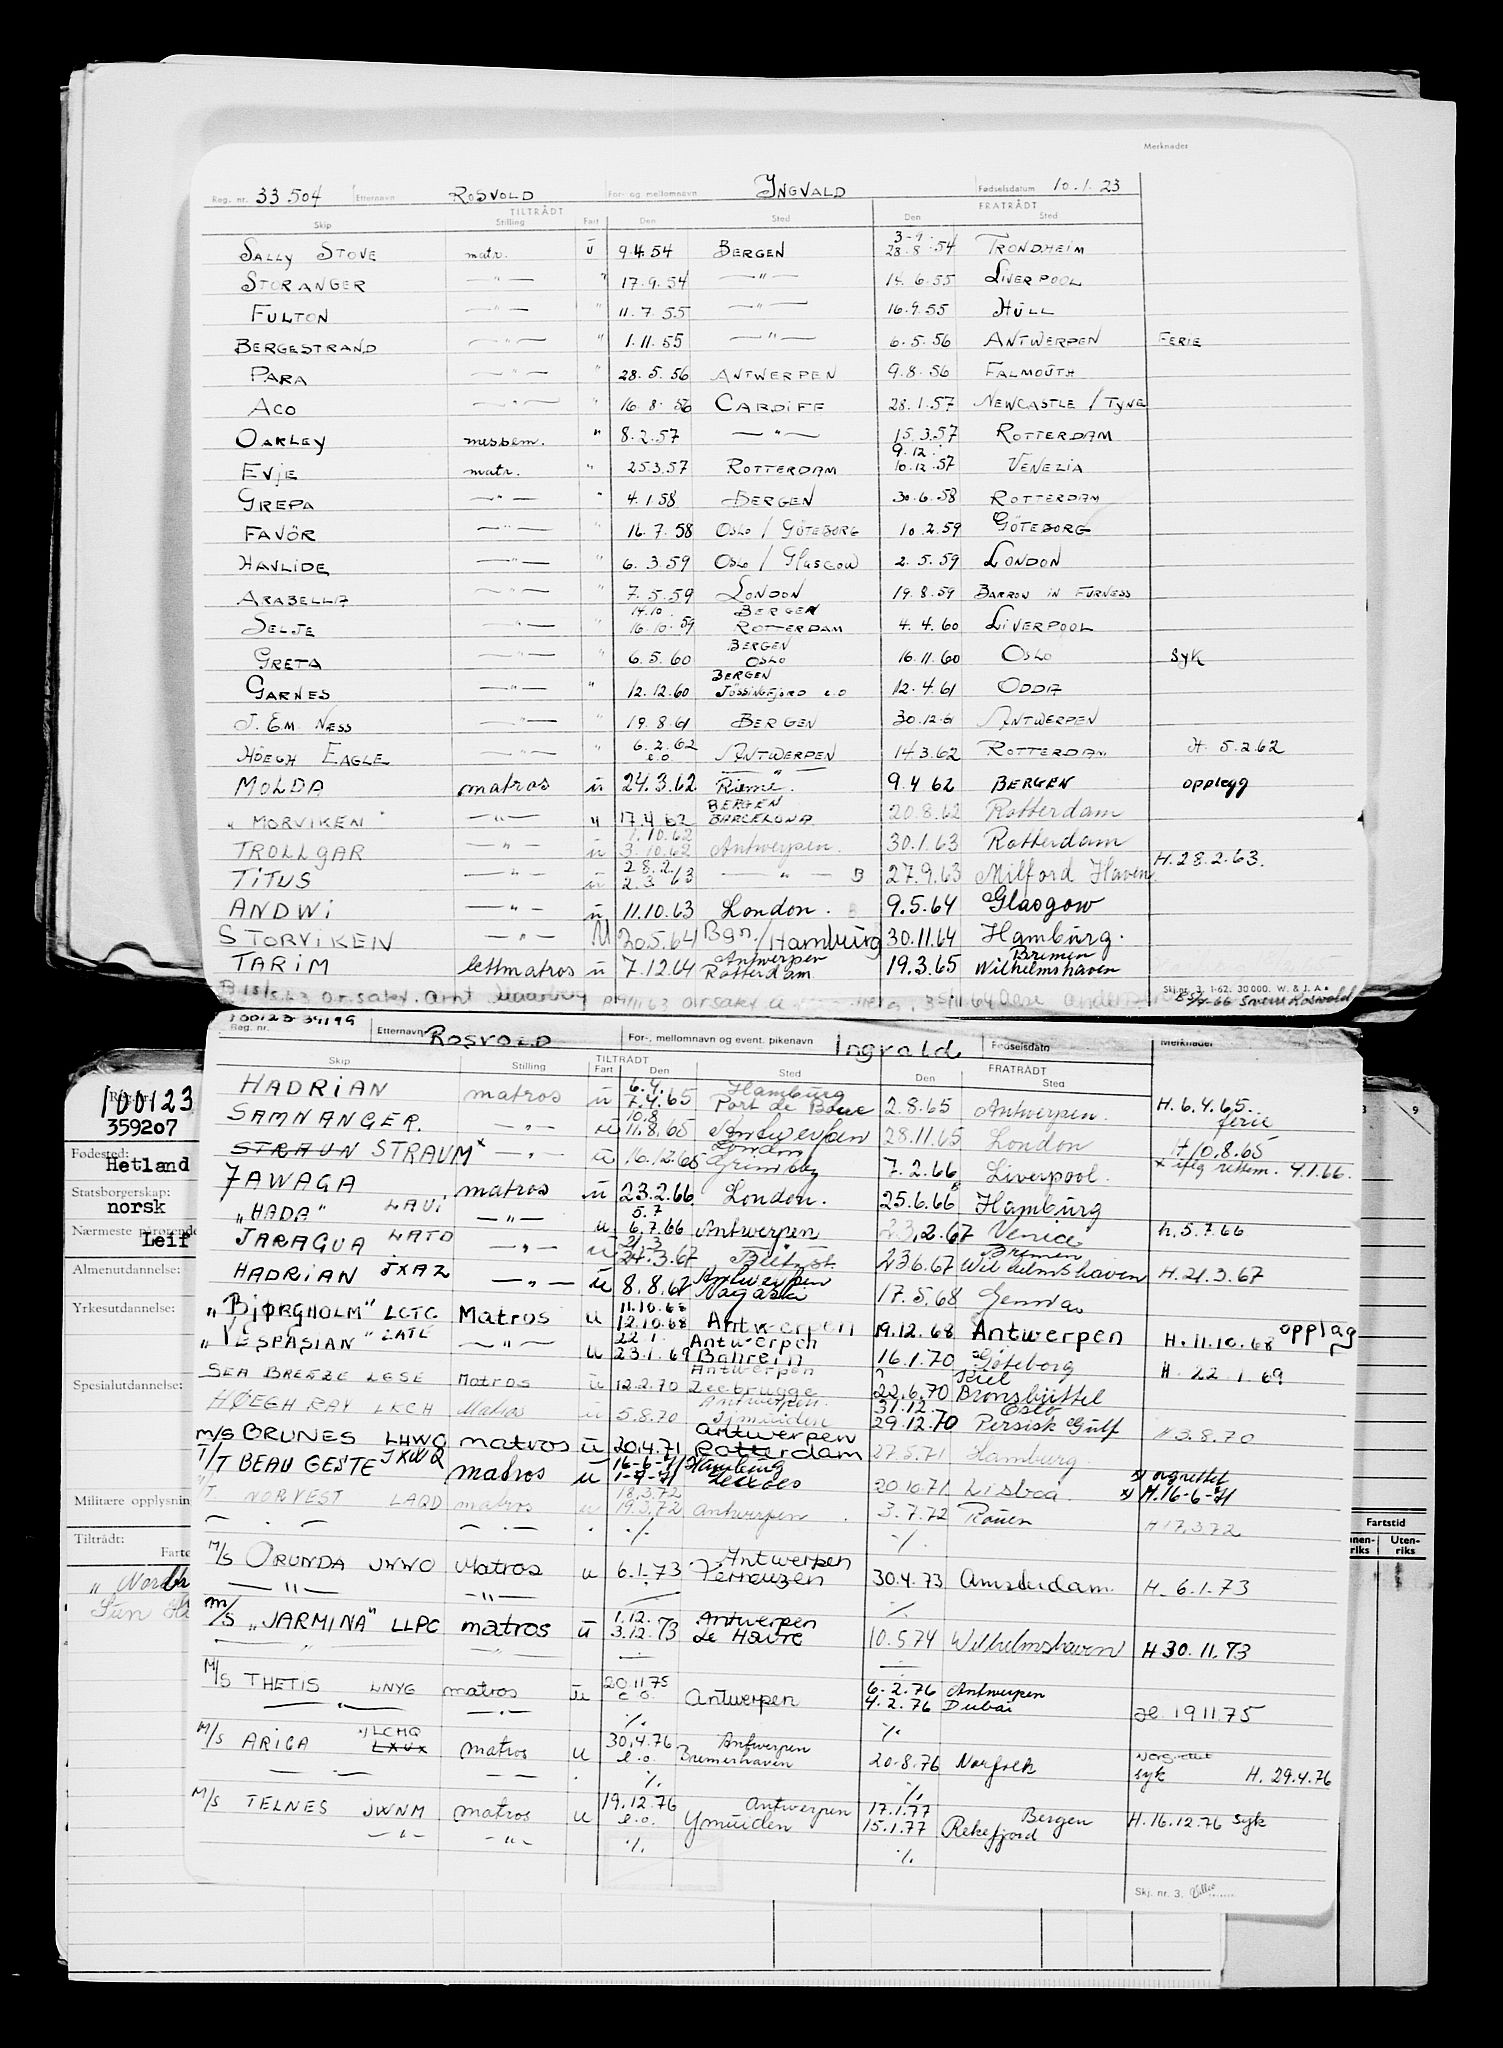 Merknader
Reg. nr. 33504 Etternavn ROSVOLD For- og mellomnavn INGVALD Fødselsdatum 10.1.23
TILTRÅDT FRATRÅDT
Skip Stilling Fart Den Sted Den Sted
3-9.
SALLY STOVE matr. ū 9.4.54 BERGEN 28.8.54 TRONDHEIM
STORANGER —"— " 17.9.54 —"— 14.6.55 LIVERPOOL
FULTON —"— " 11.7.55 —"— 16.9.55 HULL
BERGESTRAND —"— " 1.11.55 —"— 6.5.56 ANTWERPEN FERIE
PARA —"— " 28.5.56 ANTWERPEN 9.8.56 FALMOUTH
ACO —"— " 16.8.56 CARDIFF 28.1.57 NEWCASTLE / TYNE
OAKLEY messem. " 8.2.57 —"— 15.3.57 ROTTERDAM
9.12.
EVJE matr. " 25.3.57 ROTTERDAM 10.12.57 VENEZIA
GREPA —"— " 4.1.58 BERGEN 30.6.58 ROTTERDAM
FAVÖR —"— " 16.7.58 OSLO / GÖTEBORG 10.2.59 GÖTEBORG
HAVLIDE —"— " 6.3.59 OSLO / GLASGOW 2.5.59 LONDON
ARABELLA —"— " 7.5.59 LONDON 19.8.59 BARROW IN FURNESS
14.10. BERGEN
SELJE —"— " 16.10.59 ROTTERDAM 4.4.60 LIVERPOOL
BERGEN
GRETA —"— " 6.5.60 OSLO 16.11.60 OSLO syk
BERGEN
GARNES —"— " 12.12.60 JÖSSINGFJORD e.o 12.4.61 ODDA
J. EM. NESS —"— " 19.8.61 BERGEN 30.12.61 ANTWERPEN
HÖEGH EAGLE —"— " 6.2.62 e.o. ANTWERPEN 14.3.62 ROTTERDAM H. 5.2.62
MOLDA matros ū 24.3.62 —"— Rieme. 9.4.62 BERGEN opplegg
BERGEN
" MORVIKEN " —"— " 17.4.62 BARCELONA 20.8.62 Rotterdam
1.10.62
TROLLGAR —"— ū 3.10.62 Antwerpen. 30.1.63 Rotterdam
28.2.
TITUS —"— ū 2.3.63 —"— B 27.9.63 Milford Haven H.28.2.63.
ANDWI —"— ū 11.10.63 London. 9.5.64 Glasgow
STORVIKEN —"— U 20.5.64 Bgn./Hamburg 30.11.64 Hamburg.
Antwerpen Bremen
TARIM lettmatros ū 7.12.64 Rotterdam 19.3.65 Wilhelmshaven
Skj. nr. 3. 1-62. 30 000. W. & J. A.
100123-34199
Reg. nr. Etternavn ROSVOLD For-, mellomnavn og event. pikenavn Ingvald Fødselsdato Merknader
TILTRÅDT FRATRÅDT
Skip Stilling Fart Den Sted Den Sted
6.4. Hamburg
HADRIAN matros ū 7.4.65 Port de Bouc 2.8.65 Antwerpen. H. 6.4.65. ferie
10.8
SAMNANGER. —"— ū 11.8.65 Antwerpen 28.11.65 London H 10.8.65
London
STRAUN STRAUM x —"— ū 16.12.65 Grimsby 7.2.66 Liverpool. x iflg rettem. 4.1.66.
JAWAGA matros ū 23.2.66 London. 25.6.66 Hamburg
5.7
"HADA" LAVI —"— u 6.7.66 Antwerpen 23.2.67 Venice h.5.7.66
21.3 Bremen
JARAGUA LATD —"— ū 24.3.67 23.6.67 Wilhelmshaven H.21.3.67
Antwerpen
HADRIAN JXAZ —"— ū 8.8.67 Nagasaki 17.5.68 Genova
11.10.68
"BJØRGHOLM" LCTC Matros u 12.10.68 Antwerpen 19.12.68 Antwerpen H.11.10.68 opplag
22.1. Antwerpen
"VESPASIAN" LATE —"— u 23.1.69 Bahrein 16.1.70 Göteborg H. 22.1.69
Antwerpen Kiel
SEA BREEZE LESE Matros ū 12.2.70 Zeebrugge 22.6.70 Brunsbüttel
Antwerpen. 31.12. Oslo
HØEGH RAY LKCH Matros ū 5.8.70 Ijmuiden 29.12.70 Persisk Gulf H 3.8.70
Antwerpen
M/S BRUNES LHWG matros ū 20.4.71 Rotterdam 27.5.71 Hamburg
16-6-71 Hamburg x) avgrettet
T/T BEAU GESTE JXWQ matros ū 1-7-71 20.10.71 Lisboa. x) H.16-6-71
18.3.72
T/T NORVEST LAQD matros u 19.3.72 Antwerpen . 3.7.72 Rouen H 17.3.72
Antwerpen
M/S ORUNDA JWWO Matros u 6.1.73 Terneuzen 30.4.73 Amsterdam. H. 6.1.73
1.12. Antwerpen
M/S "JARMINA" LLPC matros ū 3.12.73 Le Havre 10.5.74 Wilhelmshaven H 30.11.73
20.11.75 6.2.76 Antwerpen
M/S THETIS LNYG matros ū e.o. Antwerpen 4.2.76 Dubai H. 19.11.75
LCMQ 30.4.76 Antwerpen
M/S ARICA LXVX matros u e.o. Bremerhaven 20.8.76 Norfolk syk H. 29.4.76
19.12.76 Antwerpen 17.1.77 Bergen
M/S TELNES JWNM matros u e.o. Ymuiden 15.1.77 Rekefjord H.16.12.76 syk
Skj. nr. 3.
Reg. nr.
100123
359207
Fødested:
Hetland
Statsborgerskap:
norsk
Nærmeste pårørende
Leif
Almenutdannelse:
Yrkesutdannelse:
Spesialutdannelse:
Militære opplysnin
Tiltrådt:
Farte
8 9
Fartstid
Innenriks Utenriks